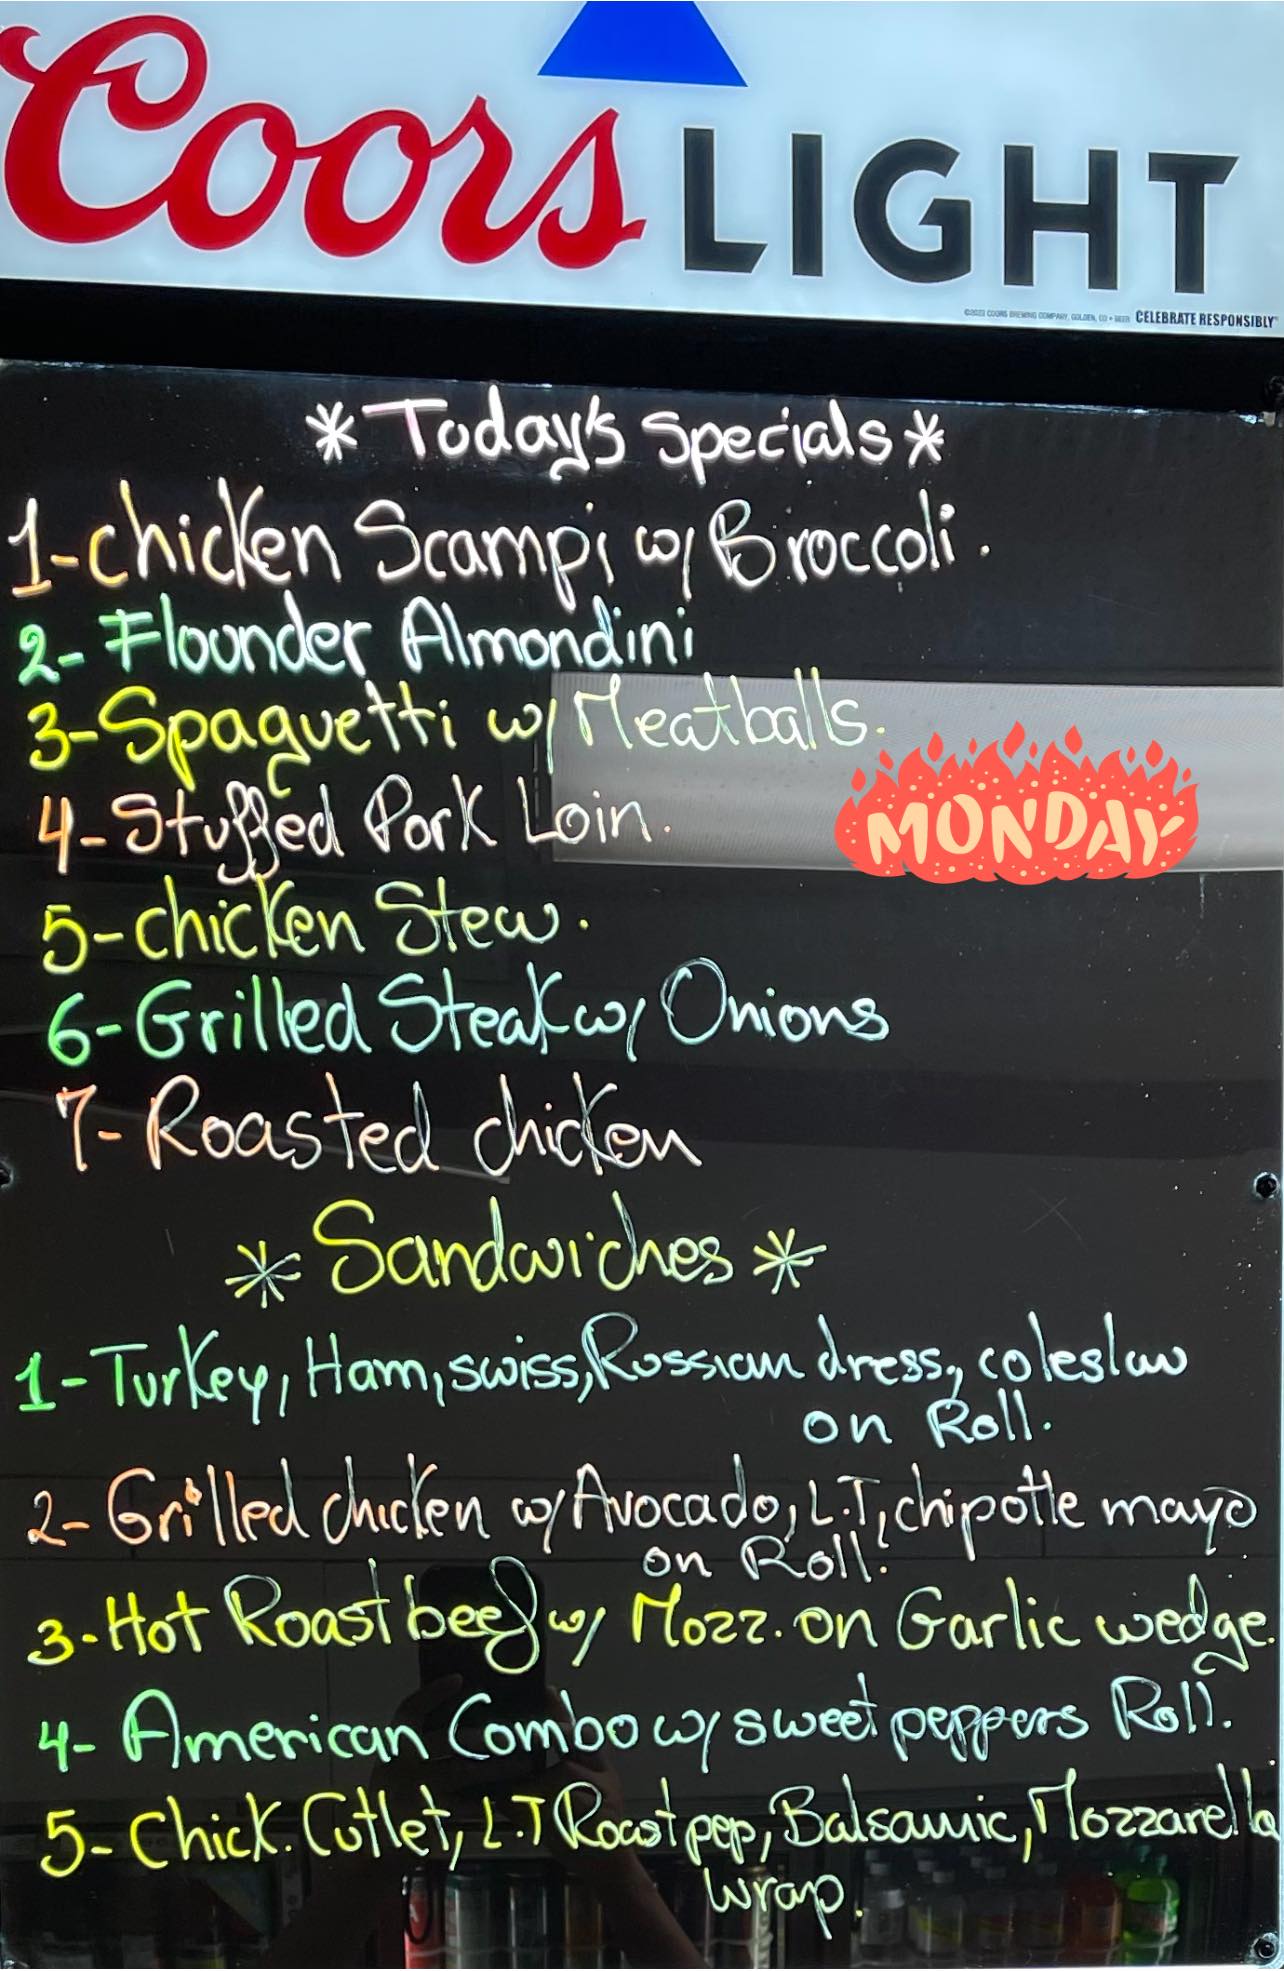 Coors LIGHT
©2023 COORS BREWING COMPANY, GOLDEN, CO • BEER CELEBRATE RESPONSIBLY®
* Today's Specials *
1-chicken Scampi w/ Broccoli.
2- Flounder Almondini
3-Spaguetti w/ Meatballs.
4-Stuffed Pork Loin.
MONDAY
5-chicken Stew.
6-Grilled Steak w/ Onions
7-Roasted chicken
* Sandwiches *
1-Turkey, Ham, swiss, Russian dress, coleslaw
on Roll.
2-Grilled chicken w/ Avocado, L.T, chipotle mayo
on Roll.
3-Hot Roast beef w/ Mozz. on Garlic wedge.
4- American Combo w/ sweet peppers Roll.
5-Chick. Cutlet, L.T Roast pep, Balsamic, Mozzarella
wrap.